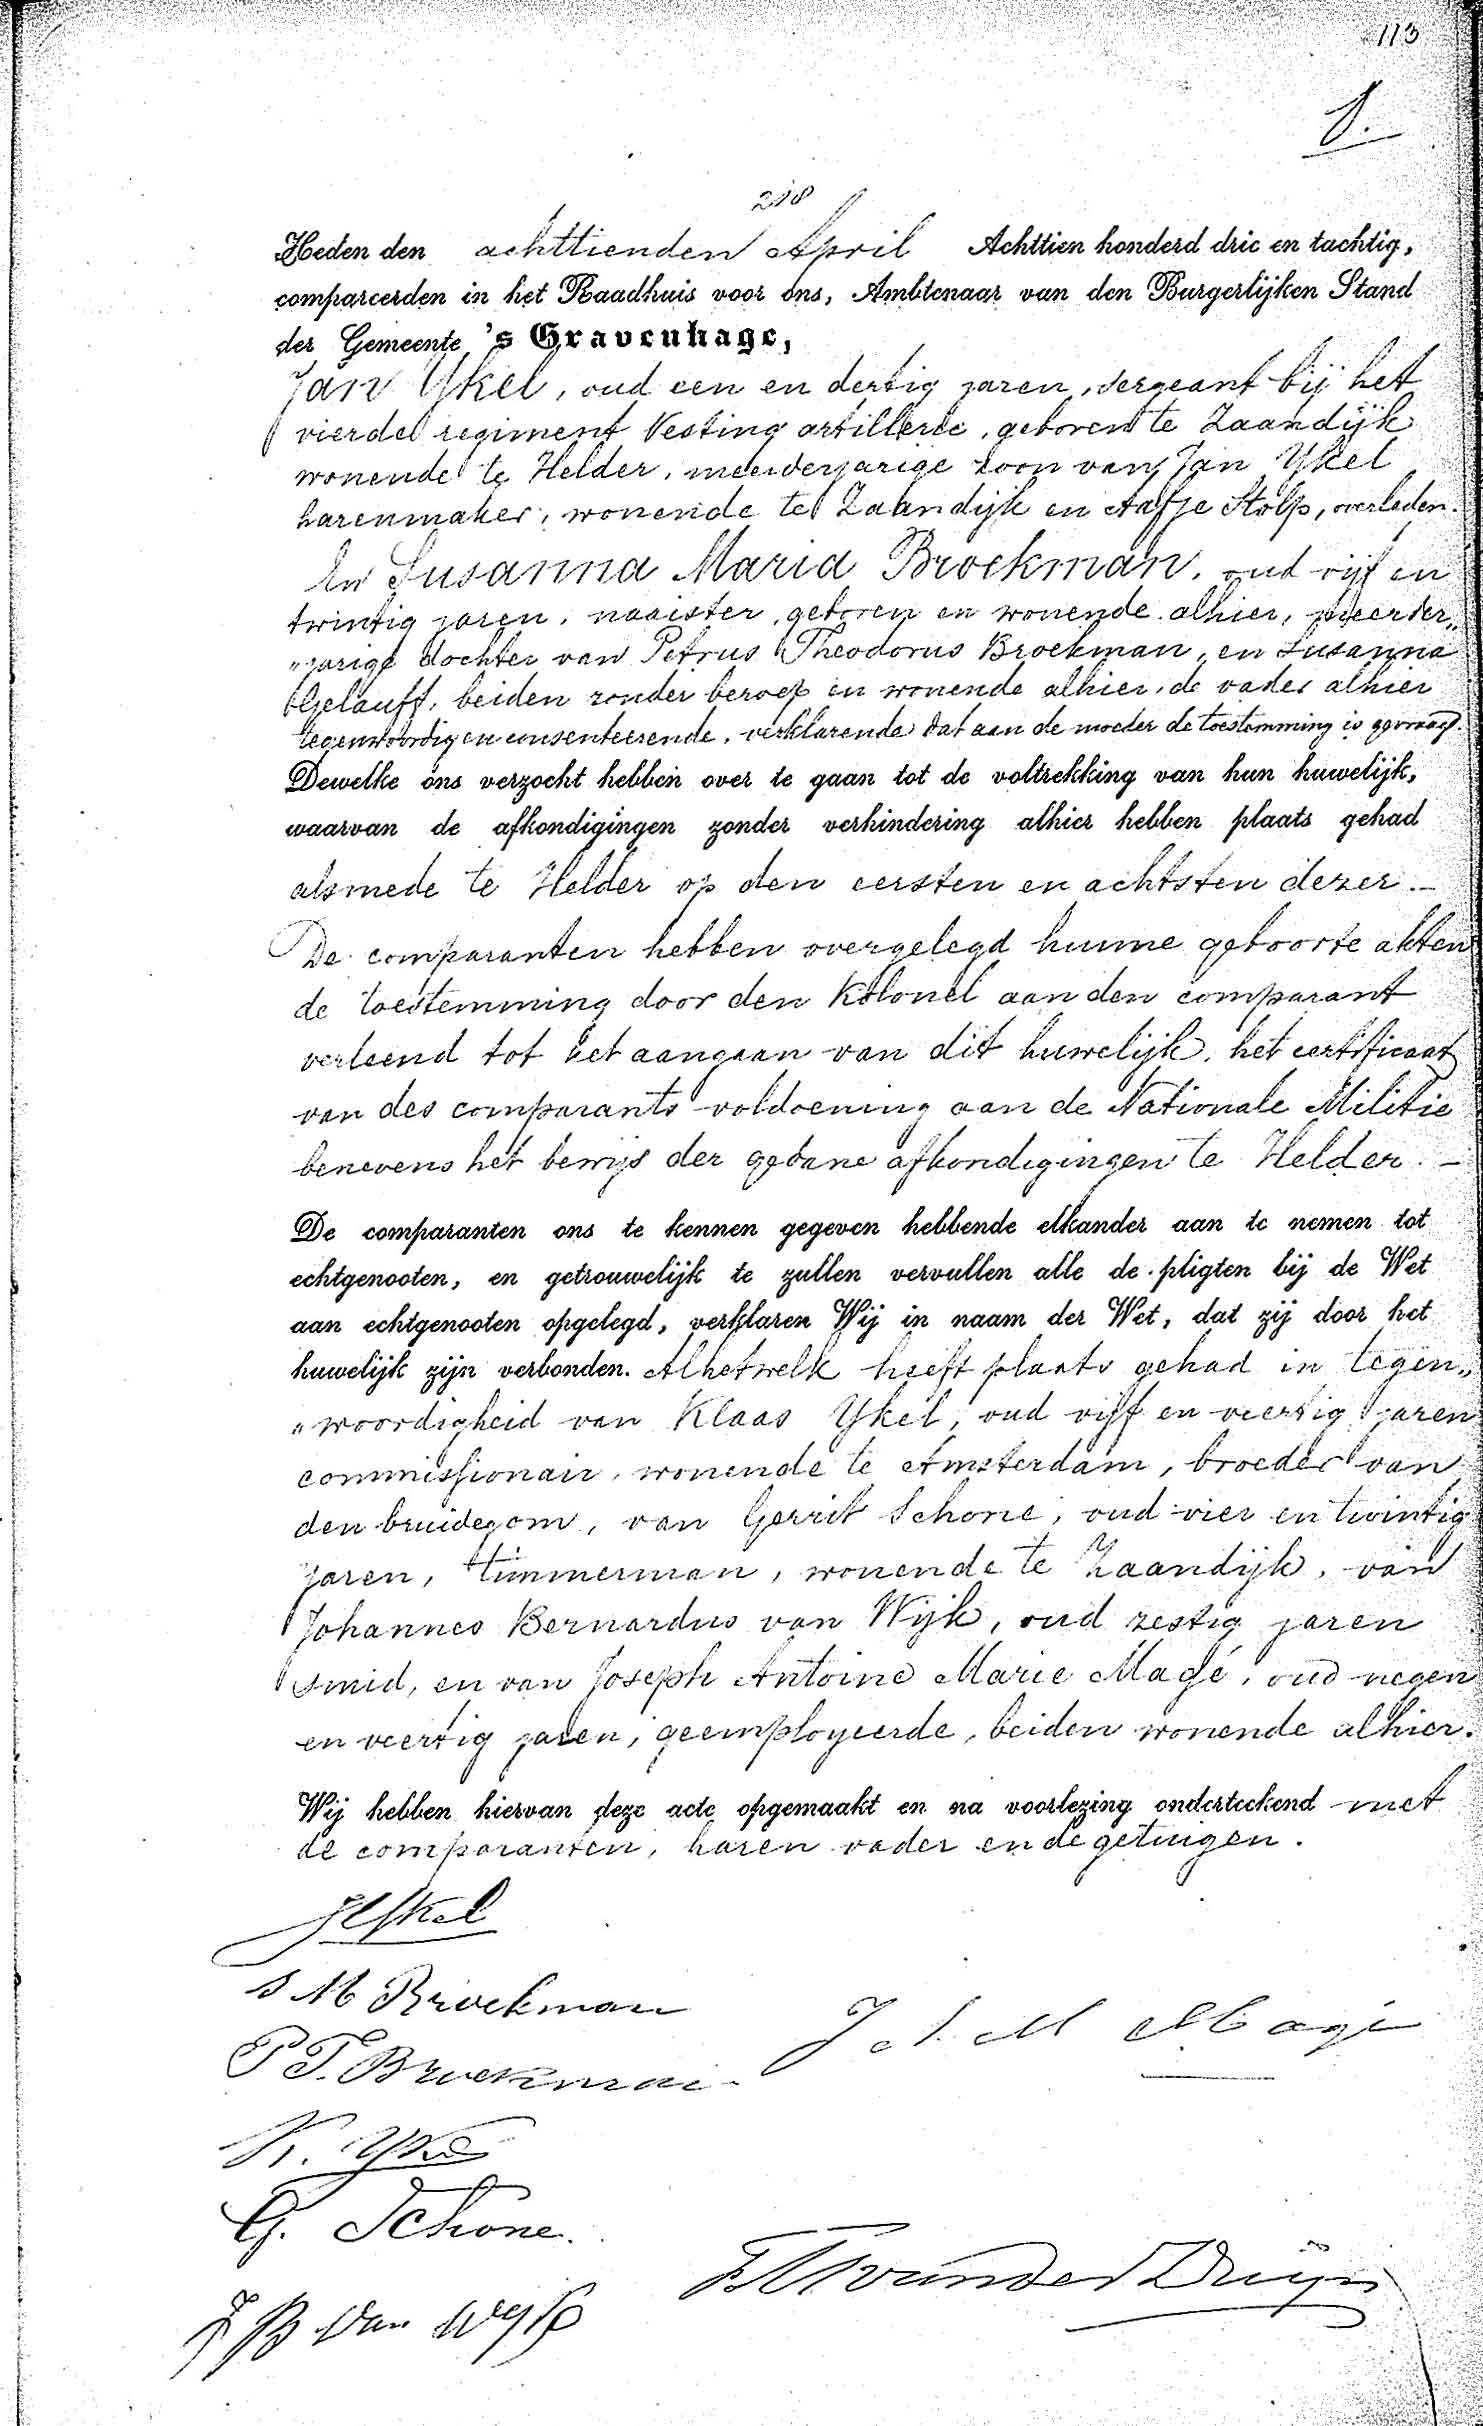 113
218
Heden den achttienden April Achttien honderd drie en tachtig,
compareerden in het Raadhuis voor ons, Ambtenaar van den Burgerlijken Stand
der Gemeente 's Gravenhage,
Jan Ykel, oud een en dertig jaren, sergeant bij het
vierde regiment Vesting artillerie, geboren te Zaandijk
wonende te Helder, meerderjarige zoon van Jan Ykel
harenmaker, wonende te Zaandijk en Aafje Stolp, overleden.
En Susanna Maria Broekman, oud vijf en
twintig jaren, naaister, geboren en wonende alhier, meerder„
„jarige dochter van Petrus Theodorus Broekman, en Susanna
Gelauff, beiden zonder beroep en wonende alhier, de vader alhier
tegenwoordig en consenteerende, verklarende dat aan de moeder de toestemming is gevraagd.
Dewelke ons verzocht hebben over te gaan tot de voltrekking van hun huwelijk,
waarvan de afkondigingen zonder verhindering alhier hebben plaats gehad
alsmede te Helder op den eersten en achtsten dezer. –
De comparanten hebben overgelegd hunne geboorte akten
de toestemming door den Kolonel aan den comparant
verleend tot het aangaan van dit huwelijk, het certificaat
van des comparants voldoening aan de Nationale Militie
benevens het bewijs der gedane afkondigingen te Helder. –
De comparanten ons te kennen gegeven hebbende elkander aan te nemen tot
echtgenooten, en getrouwelijk te zullen vervullen alle de pligten bij de Wet
aan echtgenooten opgelegd, verklaren Wij in naam der Wet, dat zij door het
huwelijk zijn verbonden. Alhetwelk heeft plaats gehad in tegen„
„woordigheid van Klaas Ykel, oud vijf en veertig jaren
commissionair, wonende te Amsterdam, broeder van
den bruidegom, van Gerrit Schone, oud vier en twintig
jaren, timmerman, wonende te Zaandijk, van
Johannes Bernardus van Wijk, oud zestig jaren
smid, en van Joseph Antoine Marie Magé, oud negen
en veertig jaren, geemployeerde, beiden wonende alhier.
Wij hebben hiervan deze acte opgemaakt en na voorlezing onderteekend met
de comparanten, haren vader en de getuigen.
J Ykel
S M Broekman
P T. Broekman
J A M Magé
K. Ykel
G. Schone.
van der Duijn
J B van Wyk